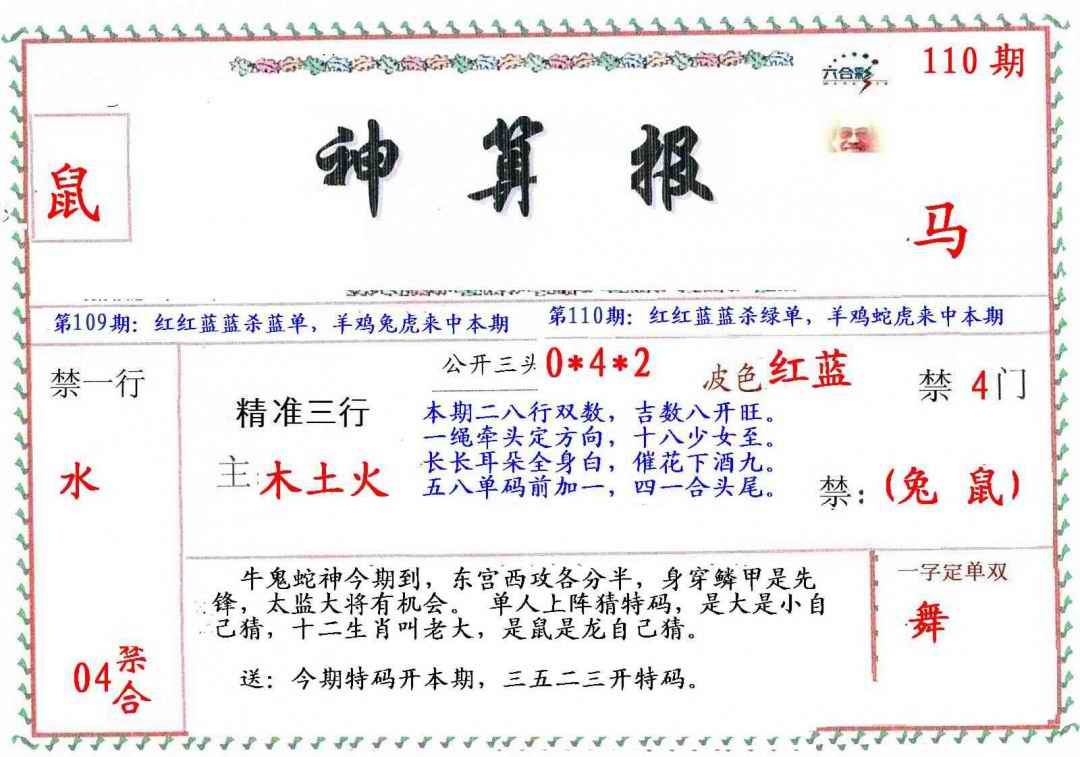 六合彩
110 期
神算报
鼠
马
第109期：红红蓝蓝杀蓝单，羊鸡兔虎来中本期
第110期：红红蓝蓝杀绿单，羊鸡蛇虎来中本期
禁一行
水
04禁合
精准三行
主:木土火
公开三头0*4*2
波色红蓝
本期二八行双数，吉数八开旺。
一绳牵头定方向，十八少女至。
长长耳朵全身白，催花下酒九。
五八单码前加一，四一合头尾。
禁4门
禁:(兔 鼠)
牛鬼蛇神今期到，东宫西攻各分半，身穿鳞甲是先
锋，太监大将有机会。 单人上阵猜特码，是大是小自
己猜，十二生肖叫老大，是鼠是龙自己猜。
送：今期特码开本期，三五二三开特码。
一字定单双
舞